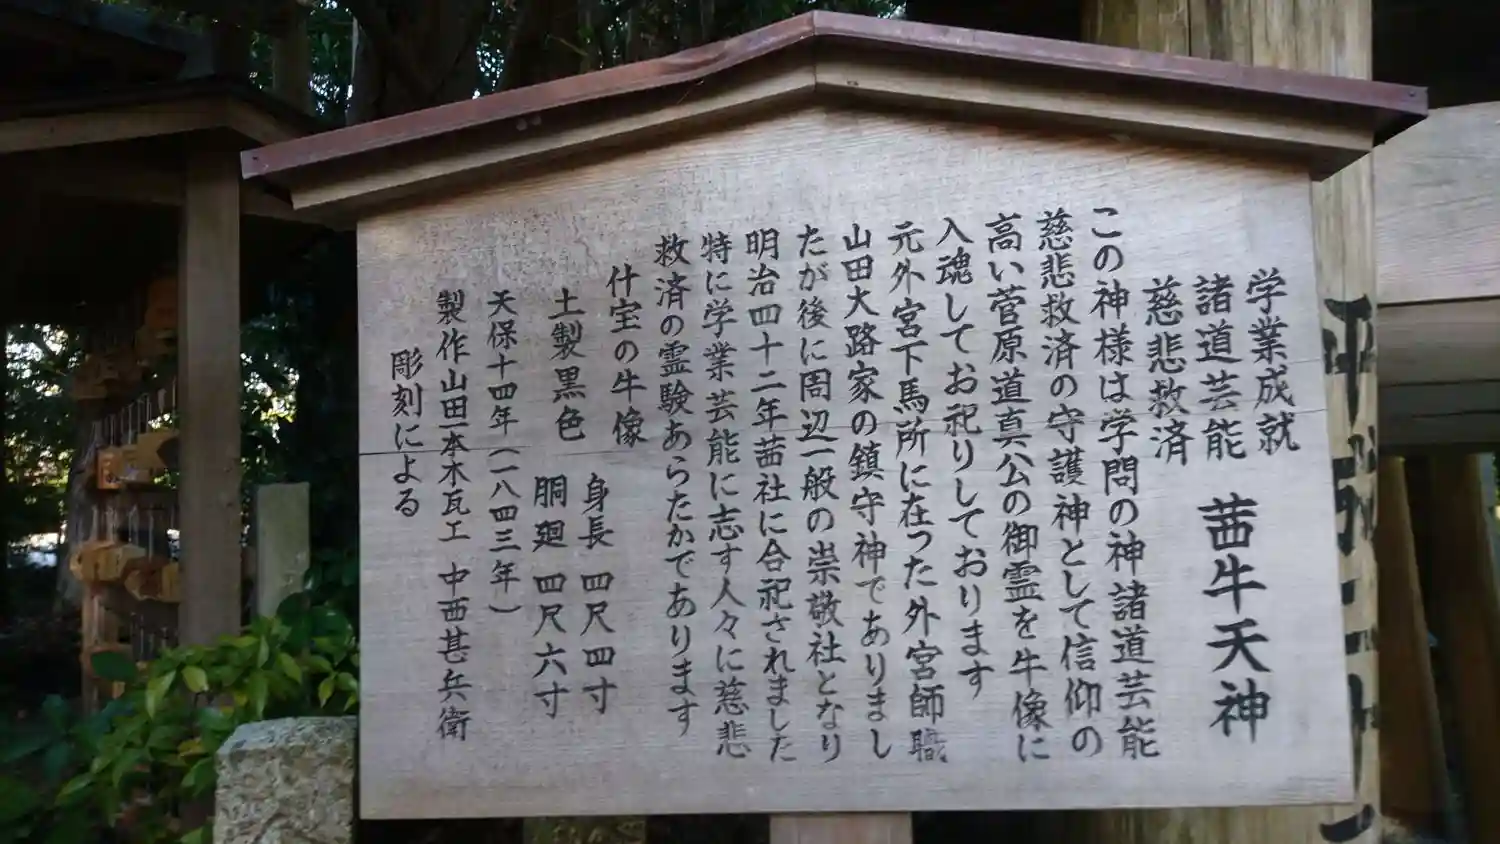 学業成就
諸道芸能
慈悲救済
茜牛天神
この神様は学問の神諸道芸能
慈悲救済の守護神として信仰の
高い菅原道真公の御霊を牛像に
入魂してお祀りしております
元外宮下馬所に在った外宮師職
山田大路家の鎮守神でありまし
たが後に周辺一般の崇敬社となり
明治四十二年茜社に合祀されました
特に学業芸能に志す人々に慈悲
救済の霊験あらたかであります
什宝の牛像
身長 四尺四寸
土製黒色
胴廻 四尺六寸
天保十四年(一八四三年)
製作山田一本木瓦工 中西甚兵衛
彫刻による